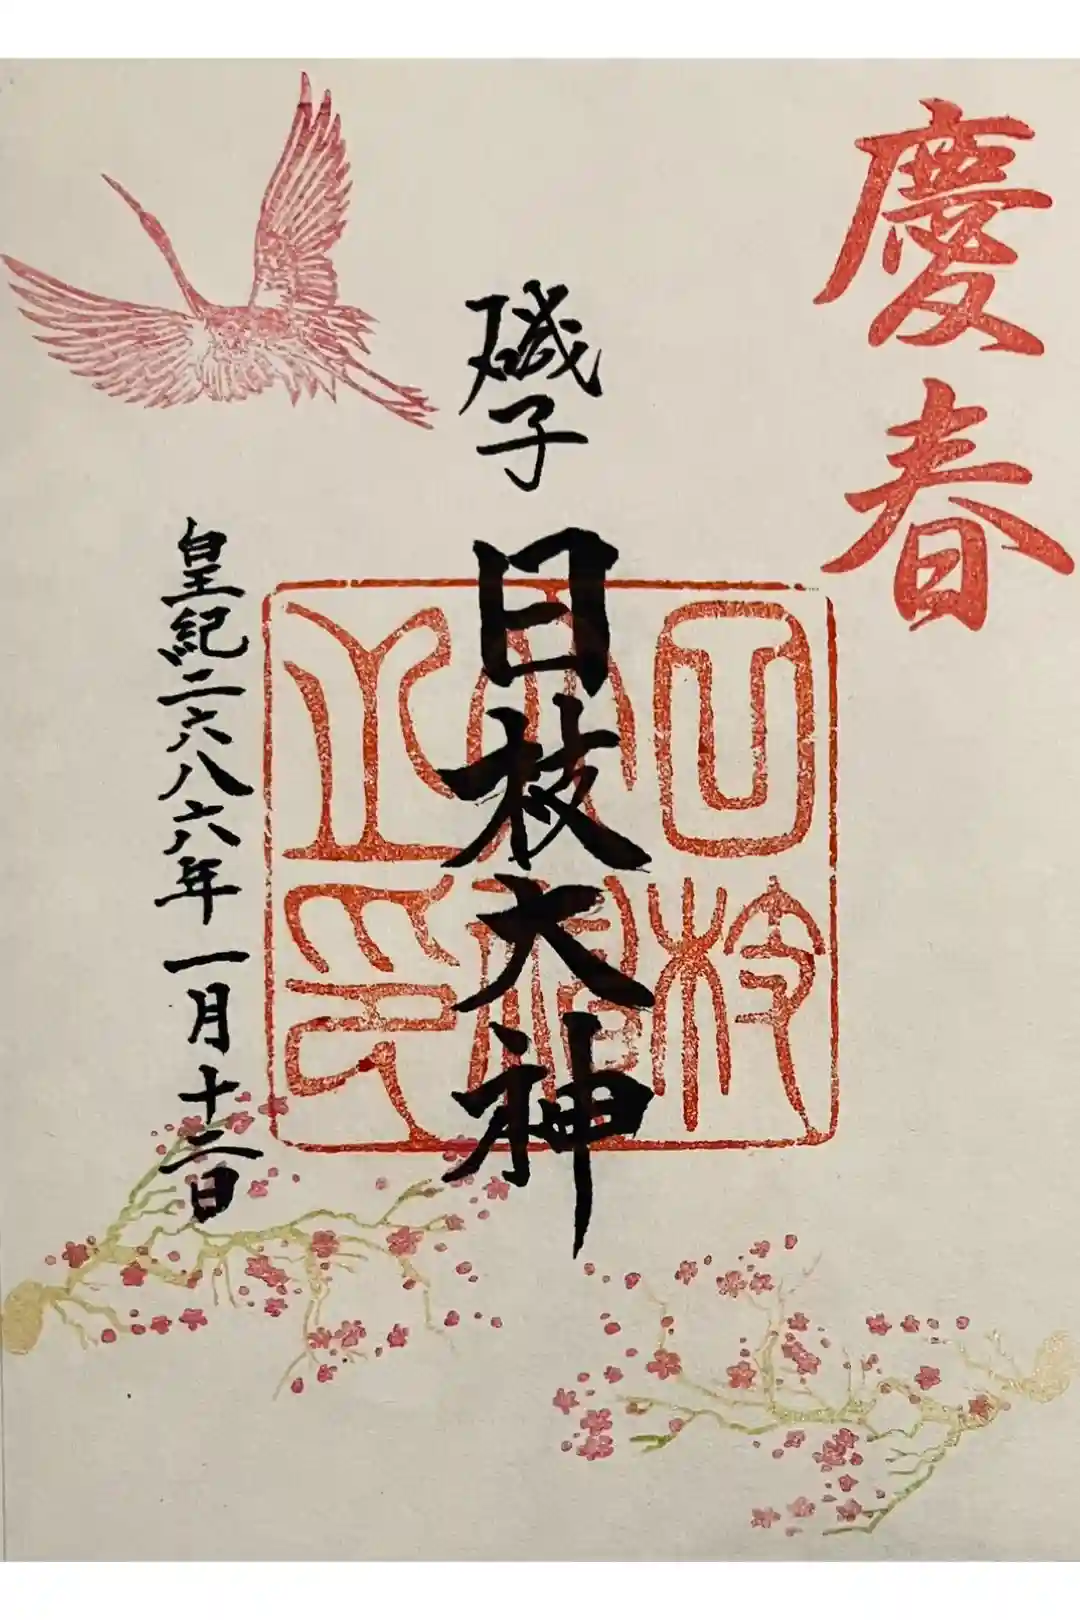 慶春
磯子
日枝大神
日枝
大神
之印
皇紀二六八六年一月十二日